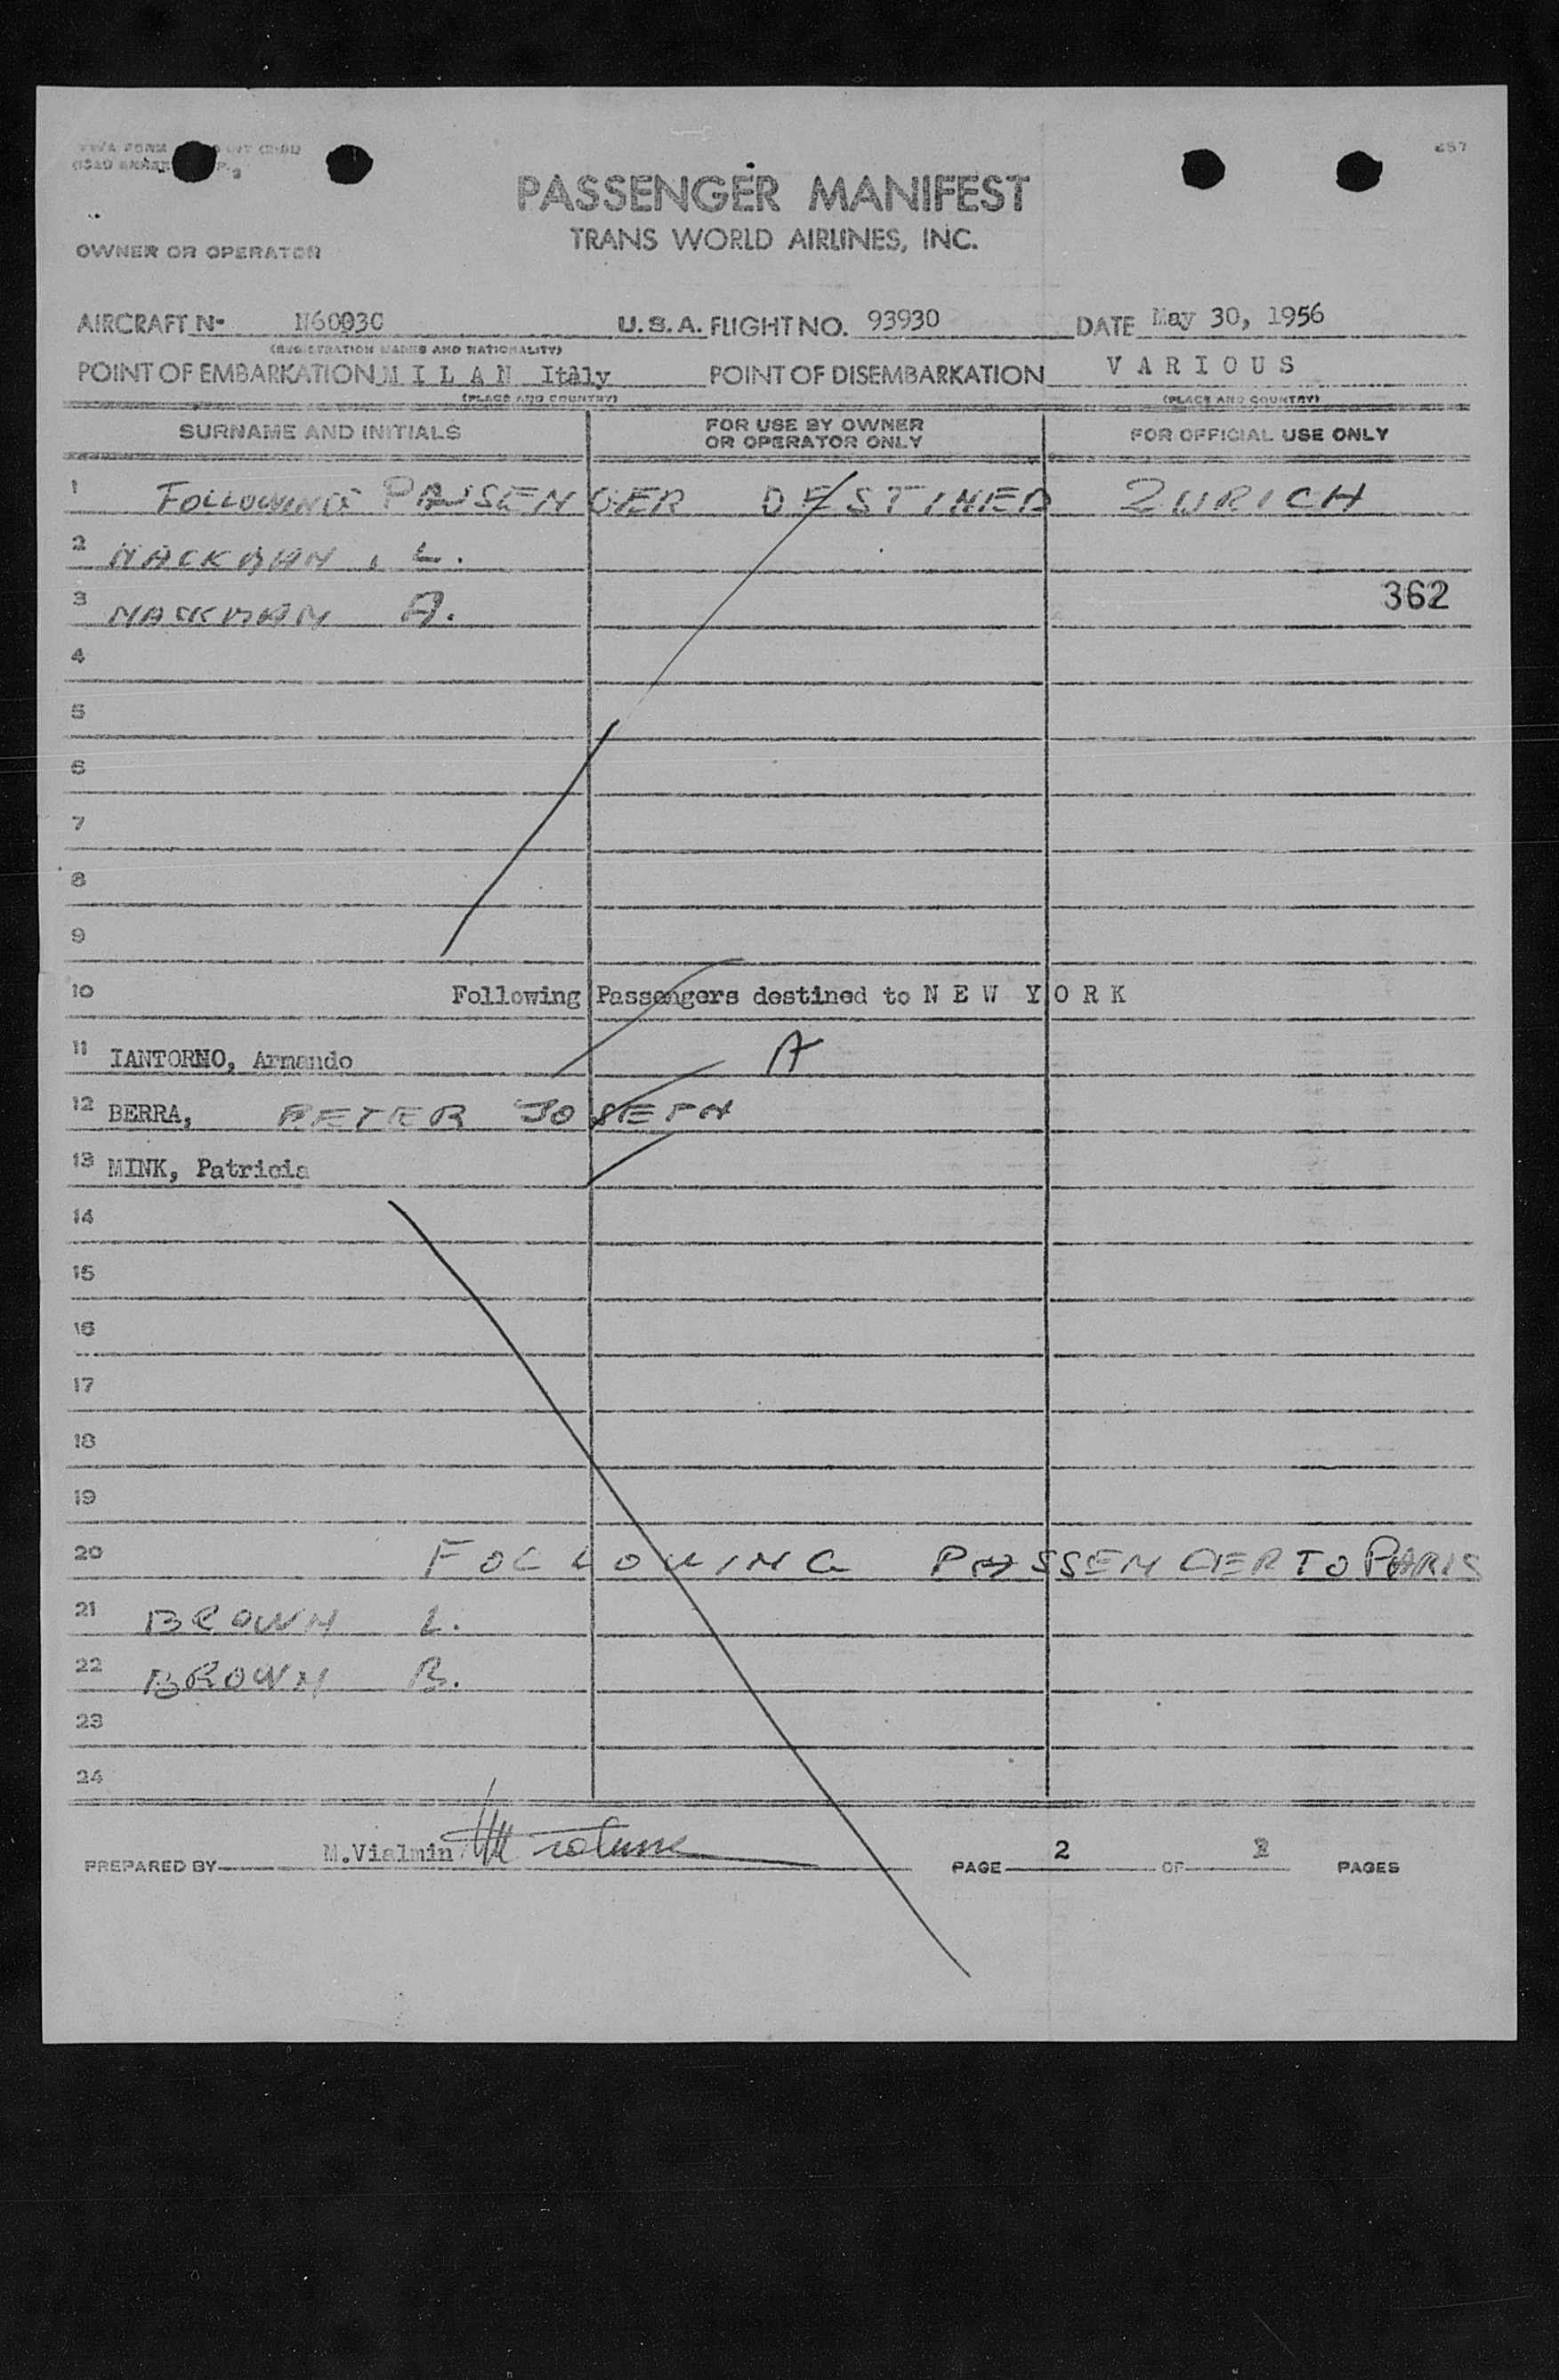 257
PASSENGER MANIFEST
TRANS WORLD AIRLINES, INC.
OWNER OR OPERATOR
AIRCRAFT No N60030 U.S.A. FLIGHT NO. 93930 DATE May 30, 1956
(REGISTRATION MARKS AND NATIONALITY)
POINT OF EMBARKATION M I L A N Italy POINT OF DISEMBARKATION V A R I O U S
(PLACE AND COUNTRY) (PLACE AND COUNTRY)
SURNAME AND INITIALS FOR USE BY OWNER OR OPERATOR ONLY FOR OFFICIAL USE ONLY
1 FOLLOWING PASSENGER DESTINED ZURICH
2 L.
3 A. 362
4
5
6
7
8
9
10 Following Passengers destined to N E W Y O R K
11 IANTORNO, Armando A
12 BERRA, PETER JOSEPH
13 MINK, Patricia
14
15
16
17
18
19
20 FOLLOWING PASSENGER TO PARIS
21 BROWN L.
22 BROWN B.
23
24
PREPARED BY M.Vialmin PAGE 2 OF PAGES